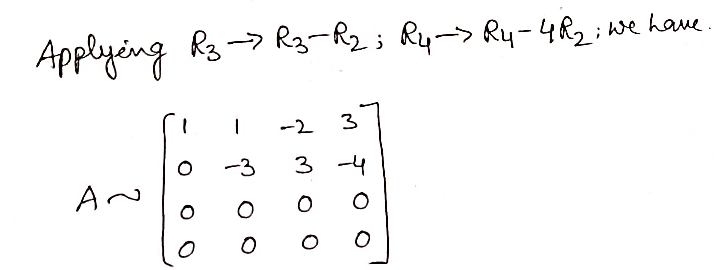 Applying R3 → R3-R2 ; R4 → R4-4R2 ; we have.
1 1 -2 3
0 -3 3 -4
A ~
0 0 0 0
0 0 0 0